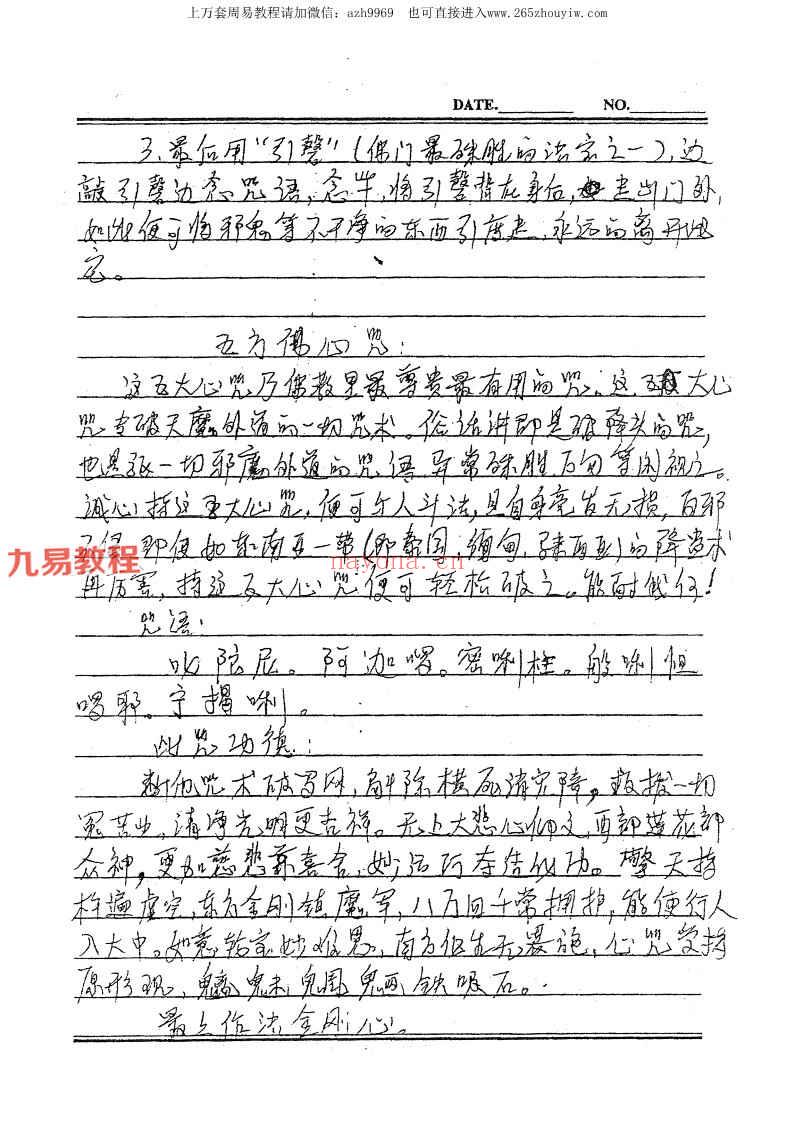 上万套周易教程请加微信：azh9969 也可直接进入www.265zhouyiw.com
DATE. NO.
3、最后用“引磬”（佛门最殊胜的法宝之一），边
敲引磬边念咒语，念毕，将引磬背在身后，走出门外，
如此便可将邪鬼等不干净的东西引度走，永远的离开此
宅。
五方佛心咒：
这五大心咒乃佛教里最尊贵最有用的咒。这五大心
咒专破天魔外道的一切咒术。俗话讲即是破降头的咒，
也是破一切邪魔外道的咒语，异常殊胜，万勿等闲视之。
诚心持这五大心咒，便可与人斗法，且自身毫发无损，百邪
不侵，即便如东南亚一带（即泰国，缅甸，马来西亚）的降头术
再厉害，持这五大心咒便可轻松破之。能耐我何！
九易教程
nayona.cn
咒语：
陀尼。阿迦啰。密唎柱。般唎怛
啰耶。宁揭唎。
此咒功德：
断他咒术破罗网，解除横死消灾障，救拔一切
冤苦业，清净光明更吉祥。无上大悲心佛父，西部莲花部
众神，更加慈悲兼喜舍，妙法阿弥陀功。擎天持
杵遍虚空，东方金刚镇魔军，八万四千常拥护，能使行人
入大中。如意轮宝妙难思，南方化生无畏施，心咒受持
原形现，魑魅魍魉铁吸石。
最上作法金刚心。